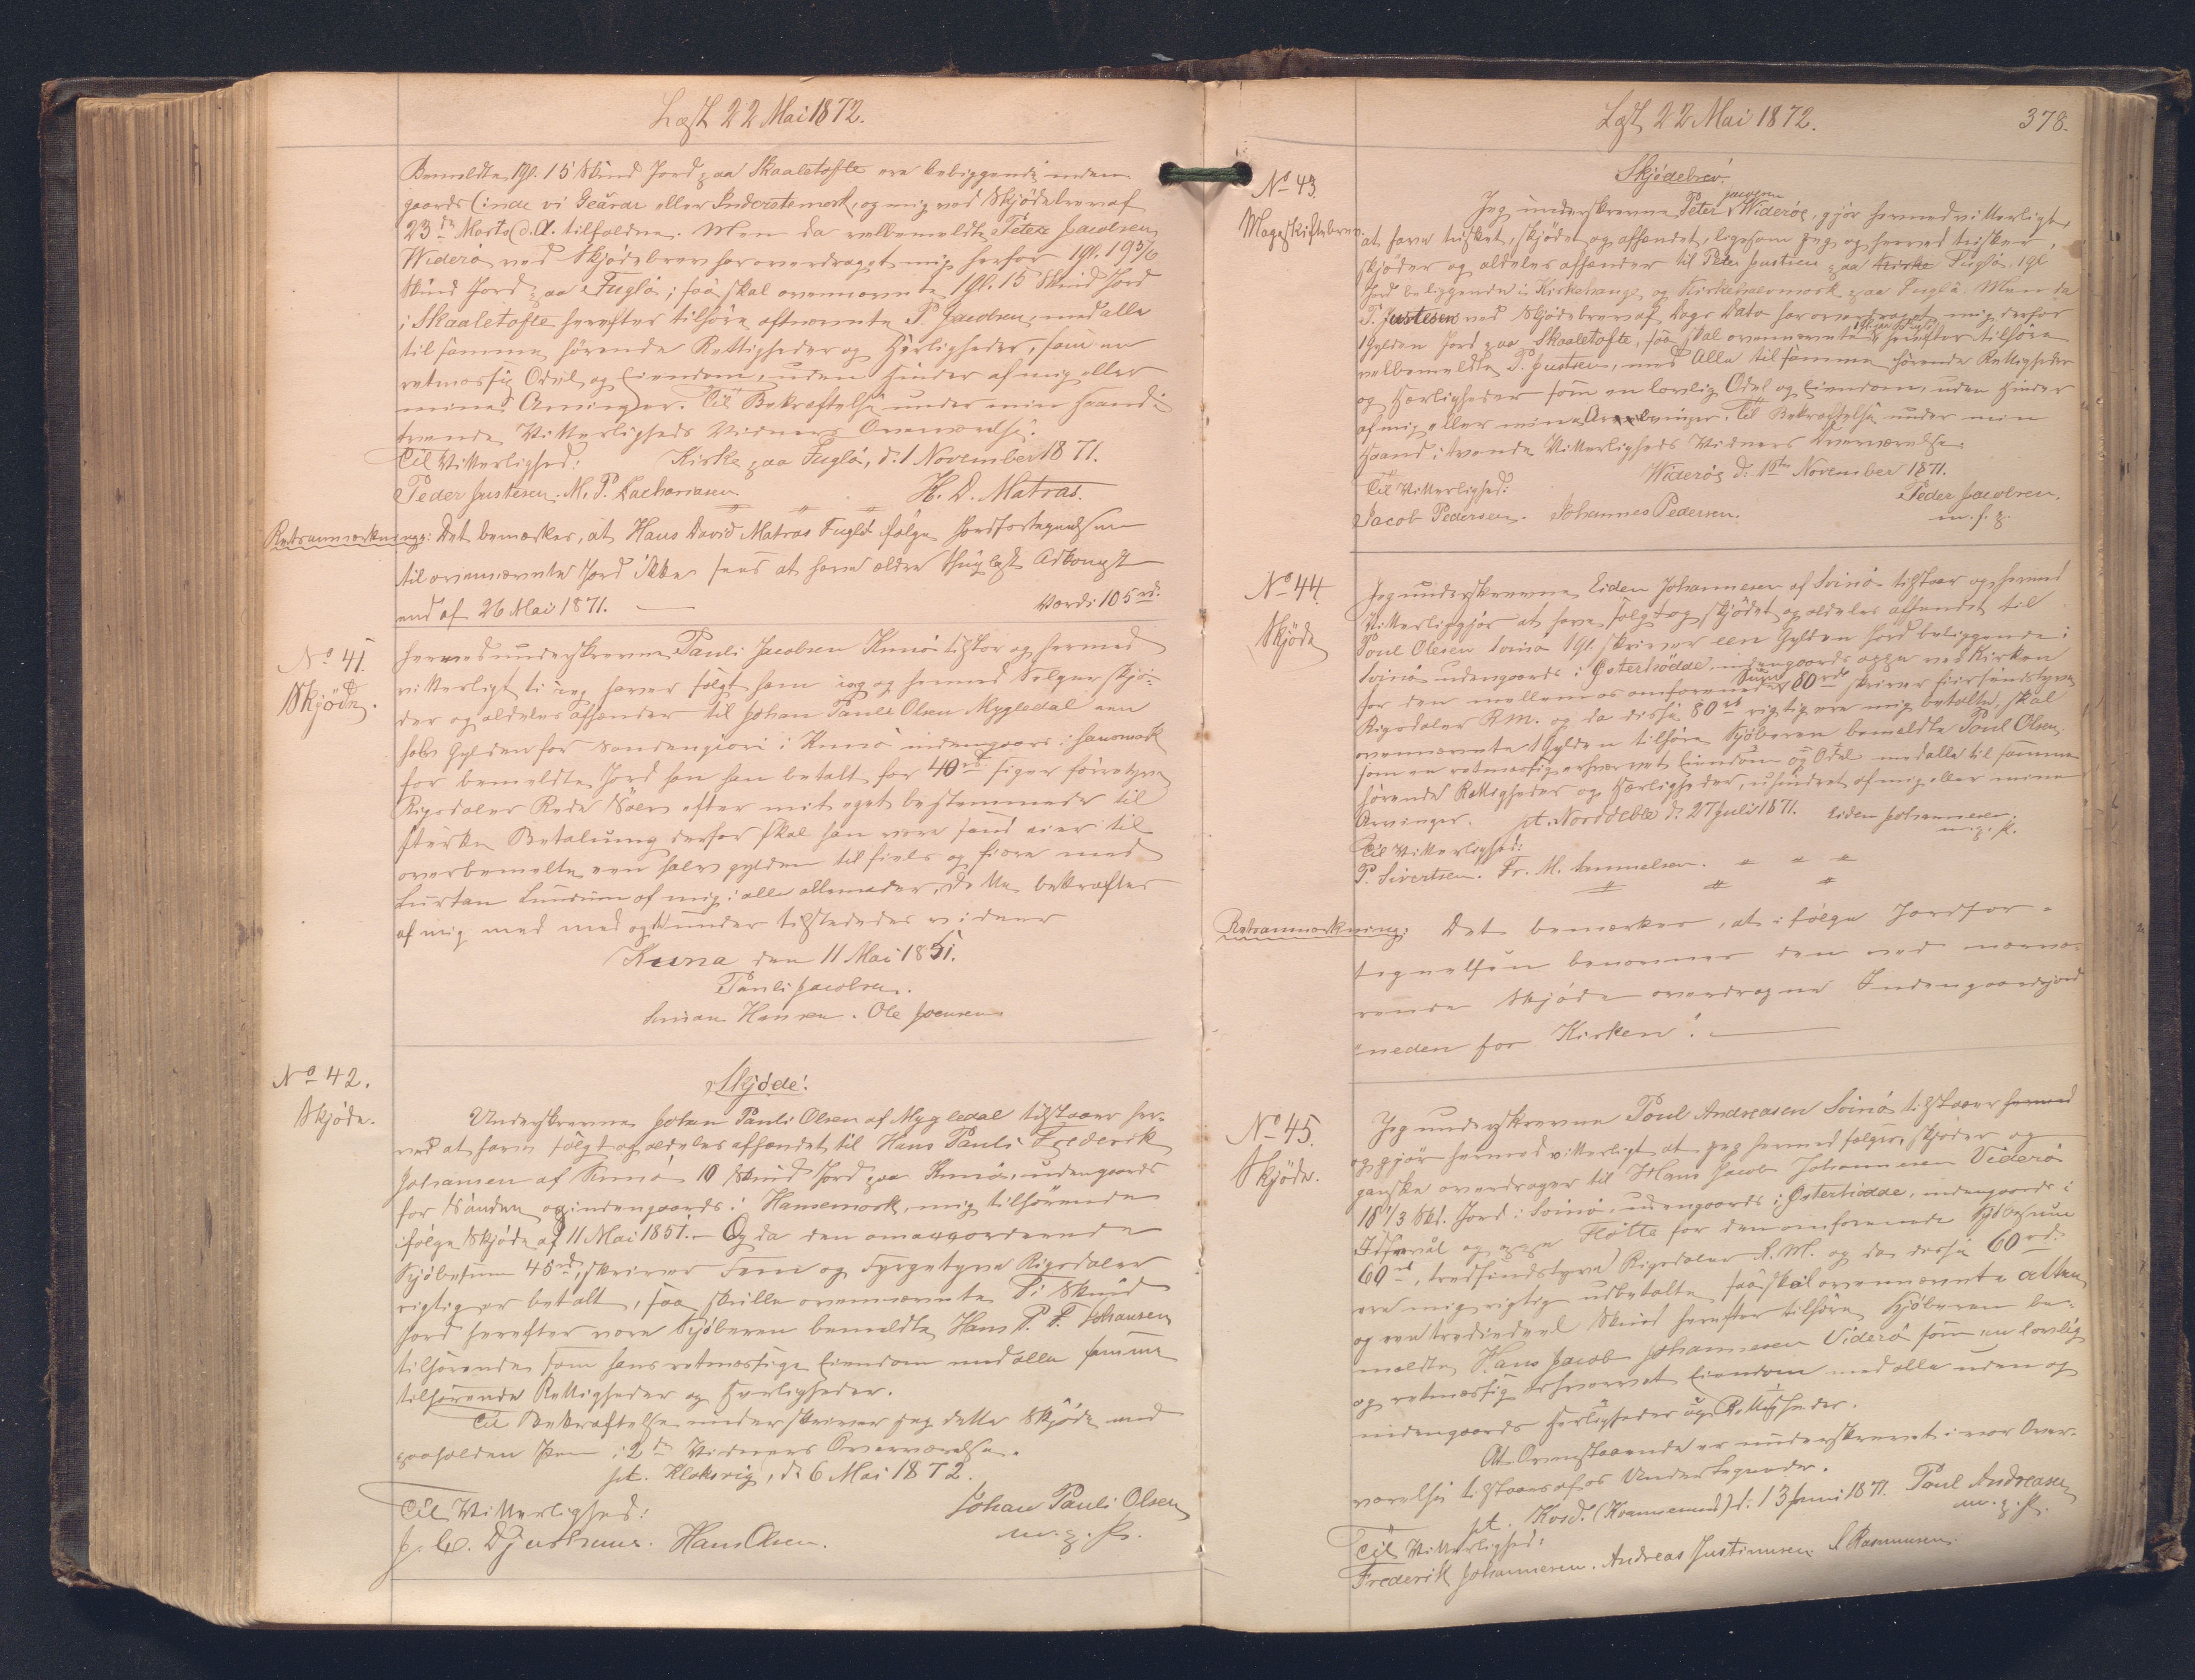 Læst 22 Mai 1872.
Bemeldte 1gl. 15 Skind Jord paa Skaaletofte ere beliggende inden-
gaards (inde vi Geàrar eller Inderstemark, og mig ved Skjödebrev af
23de Marts d. A. tilfalden. Men da velbemeldte Peter Jacobsen
Widerö ved Skjödebrev har overdraget mig herfor 1gl. 19 5/6
Skind Jord paa Fuglö; saa skal ovennævnte 1gl. 15 Skind Jord
i Skaaletofte herefter tilhöre oftnævnte P. Jacobsen, med alle
til samme hörende Rettigheder og Herligheder, som en
retmæssig Odel og Eiendom, uden Hinder af mig eller
mine Arvinger. Til Bekræftelse under min Haand i
tvende Vitterligheds Vidners Overværelse.
Til Vitterlighed: Kirke paa Fuglö, d. 1 November 1871.
Peder Justesen. M. P. Zachariasen. H. D. Matras.
Retsanmærkning: Det bemærkes, at Hans David Matras Fuglö ifölge Jordfortegnelsen
til ovennævnte Jord ikke sees at have ældre thinglæst Adkomst
end af 26 Mai 1871. Værdi 105 rd.
No 41.
Skjöde.
Hermed underskrevne Pauli Jacobsen Kunö tilstor og hermed
vitterligt at jeg haver solgt som jeg og hermed Selger skjö-
der og aldeles afhænder til Johan Pauli Olsen Mygledal een
halv Gylden for Sandengiori i Kunö indengaars i Hansmark
for bemeldte Jord har han betalt for 40 rd siger förretyve
Rigsdaler Rede Sölv efter mit eget bestemmede til
sterke Betalning derfor skal han være sand eier til
overbemelte een halv gylden til fiels og fiore med
Lurtan Lundum af mig i alle allemader, dette bekræftes
af mig med med og under tilstededer vidner
Kuna den 11 Mai 1851.
Pauli Jacobsen.
Simian Hansen. Ole Joensen
No 42.
Skjöde.
Skjöde.
Underskrevne Johan Pauli Olsen af Mygledal tilstaaer her-
ved at have solgt og aldeles afhændet til Hans Pauli Frederik
Johansen af Kunö 10 Skind Jord paa Kunö, udengaards
for Sanden og indengaards i Hansemark, mig tilhörende
ifölge Skjöde af 11 Mai 1851. Og da den omaccorderede
Kjöbesum 45 rd, skriver Fem og Fyrgetyve Rigsdaler
rigtig er betalt, saa skulle ovennævnte Ti Skind
Jord herefter være Kjöberen bemeldte Hans P. F. Johansen
tilhörende som hans retmæssige Eiendom med alle samme
tilhörende Rettigheder og Herligheder.
Til Bekræftelse underskriver jeg dette Skjöde med
paaholden Pen i 2de Vidners Overværelse.
pt. Klaksvig, d. 6 Mai 1872.
Til Vitterlighed: Johan Pauli Olsen
J. C. Djurhuus. Hans Olsen. m. p. P.
Læst 22 Mai 1872. 378.
No 43.
Mageskiftebrev.
Skjödebrev.
Jacobsen
Jeg underskrevne Peter Wideröe, gjör hermed vitterligt,
at have tusket, skjödet og afhændet, ligesom jeg og herved tusker,
skjöder og aldeles afhænder til Peter Justsen paa Kirke Fuglö, 1gl
Jord beliggende i Kirkehauge og Kirkehavemark paa Fuglö. Men da
P. Justesen ved Skjödebrev af Dags Dato har overdraget mig derfor
1 Gylden Jord paa Skaaletofte, saa skal ovennævnte herefter tilhöre
velbemeldte P. Justsen, med Alle til samme hörende Rettigheder
og Herligheder som en lovlig Odel og Eiendom, uden Hinder
af mig eller mine Arvinger. Til Bekræftelse under min
Haand i tvende Vitterligheds Vidners Overværelse.
Widerös d. 16de November 1871.
Til Vitterlighed: Peder Jacobsen.
Jacob Pedersen. Johannes Pedersen. m. f. p.
No 44.
Skjöde
Jeg underskrevne Eiden Johannesen af Svinö tilstaar og herved
Vitterliggjör at have solgt og skjödet og aldeles afhændet til
Poul Olesen Svinö 1gl. skriver een Gylden Jord beliggende i
Svinö udengaards i Österhödde, indengaards oppe ved Kirken
for den mellem os omforenede Sum 80 rd skriver fiirsendstyve
Rigsdaler R. M. og da disse 80 rd rigtig ere mig betalte, skal
ovennævnte 1 Gylden tilhöre Kjöberen bemeldte Poul Olsen
som en retmæssig erhvervet Eiendom og Odel med alle til samme
hörende Rettigheder og Herligheder, uhindret af mig eller mine
Arvinger. pt. Norddeble d. 27 Juli 1871. Eiden Johannesen.
Til Vitterlighed: m. p. P.
P. Sivertsen. Fr. M. Samuelsen.
Retsanmærkning: Det bemærkes, at ifölge Jordfor-
tegnelsen benævnes den ved nærvæ-
rende Skjöde overdragne Indengaardsjord
"neden for Kirken".
No 45.
Skjöde.
Jeg underskrevne Poul Andreasen Svinö tilstaaer hermed
og gjör hermed vitterligt at jeg hermed sælger, skjöder og
ganske overdrager til Hans Jacob Johannesen Viderö
18 1/3 Skd. Jord i Svinö, udengaards i Österhödde, indengaards i
og oppe Flötte for den omforenede Kjöbesum
60 rd, tredsindstyve Rigsdaler R. M. og da disse 60 rd.
ere mig rigtig udbetalte, saa skal ovennævnte atten
og een trediedeel Skind herefter tilhöre Kjöberen be-
meldte Hans Jacob Johannesen Viderö som en lovlig
og retmæssig erhvervet Eiendom med alle uden og
indengaards Herligheder og Rettigheder.
At Ovenstaaende er underskrevet i vor Over-
værelse tilstaaes af os Undertegnede.
pt. Kosd. (Kvannesund) d. 13 Juni 1871. Poul Andreasen
Til Vitterlighed: m. p. P.
Frederik Johannesen. Andreas Justinusen. S Rasmussen.